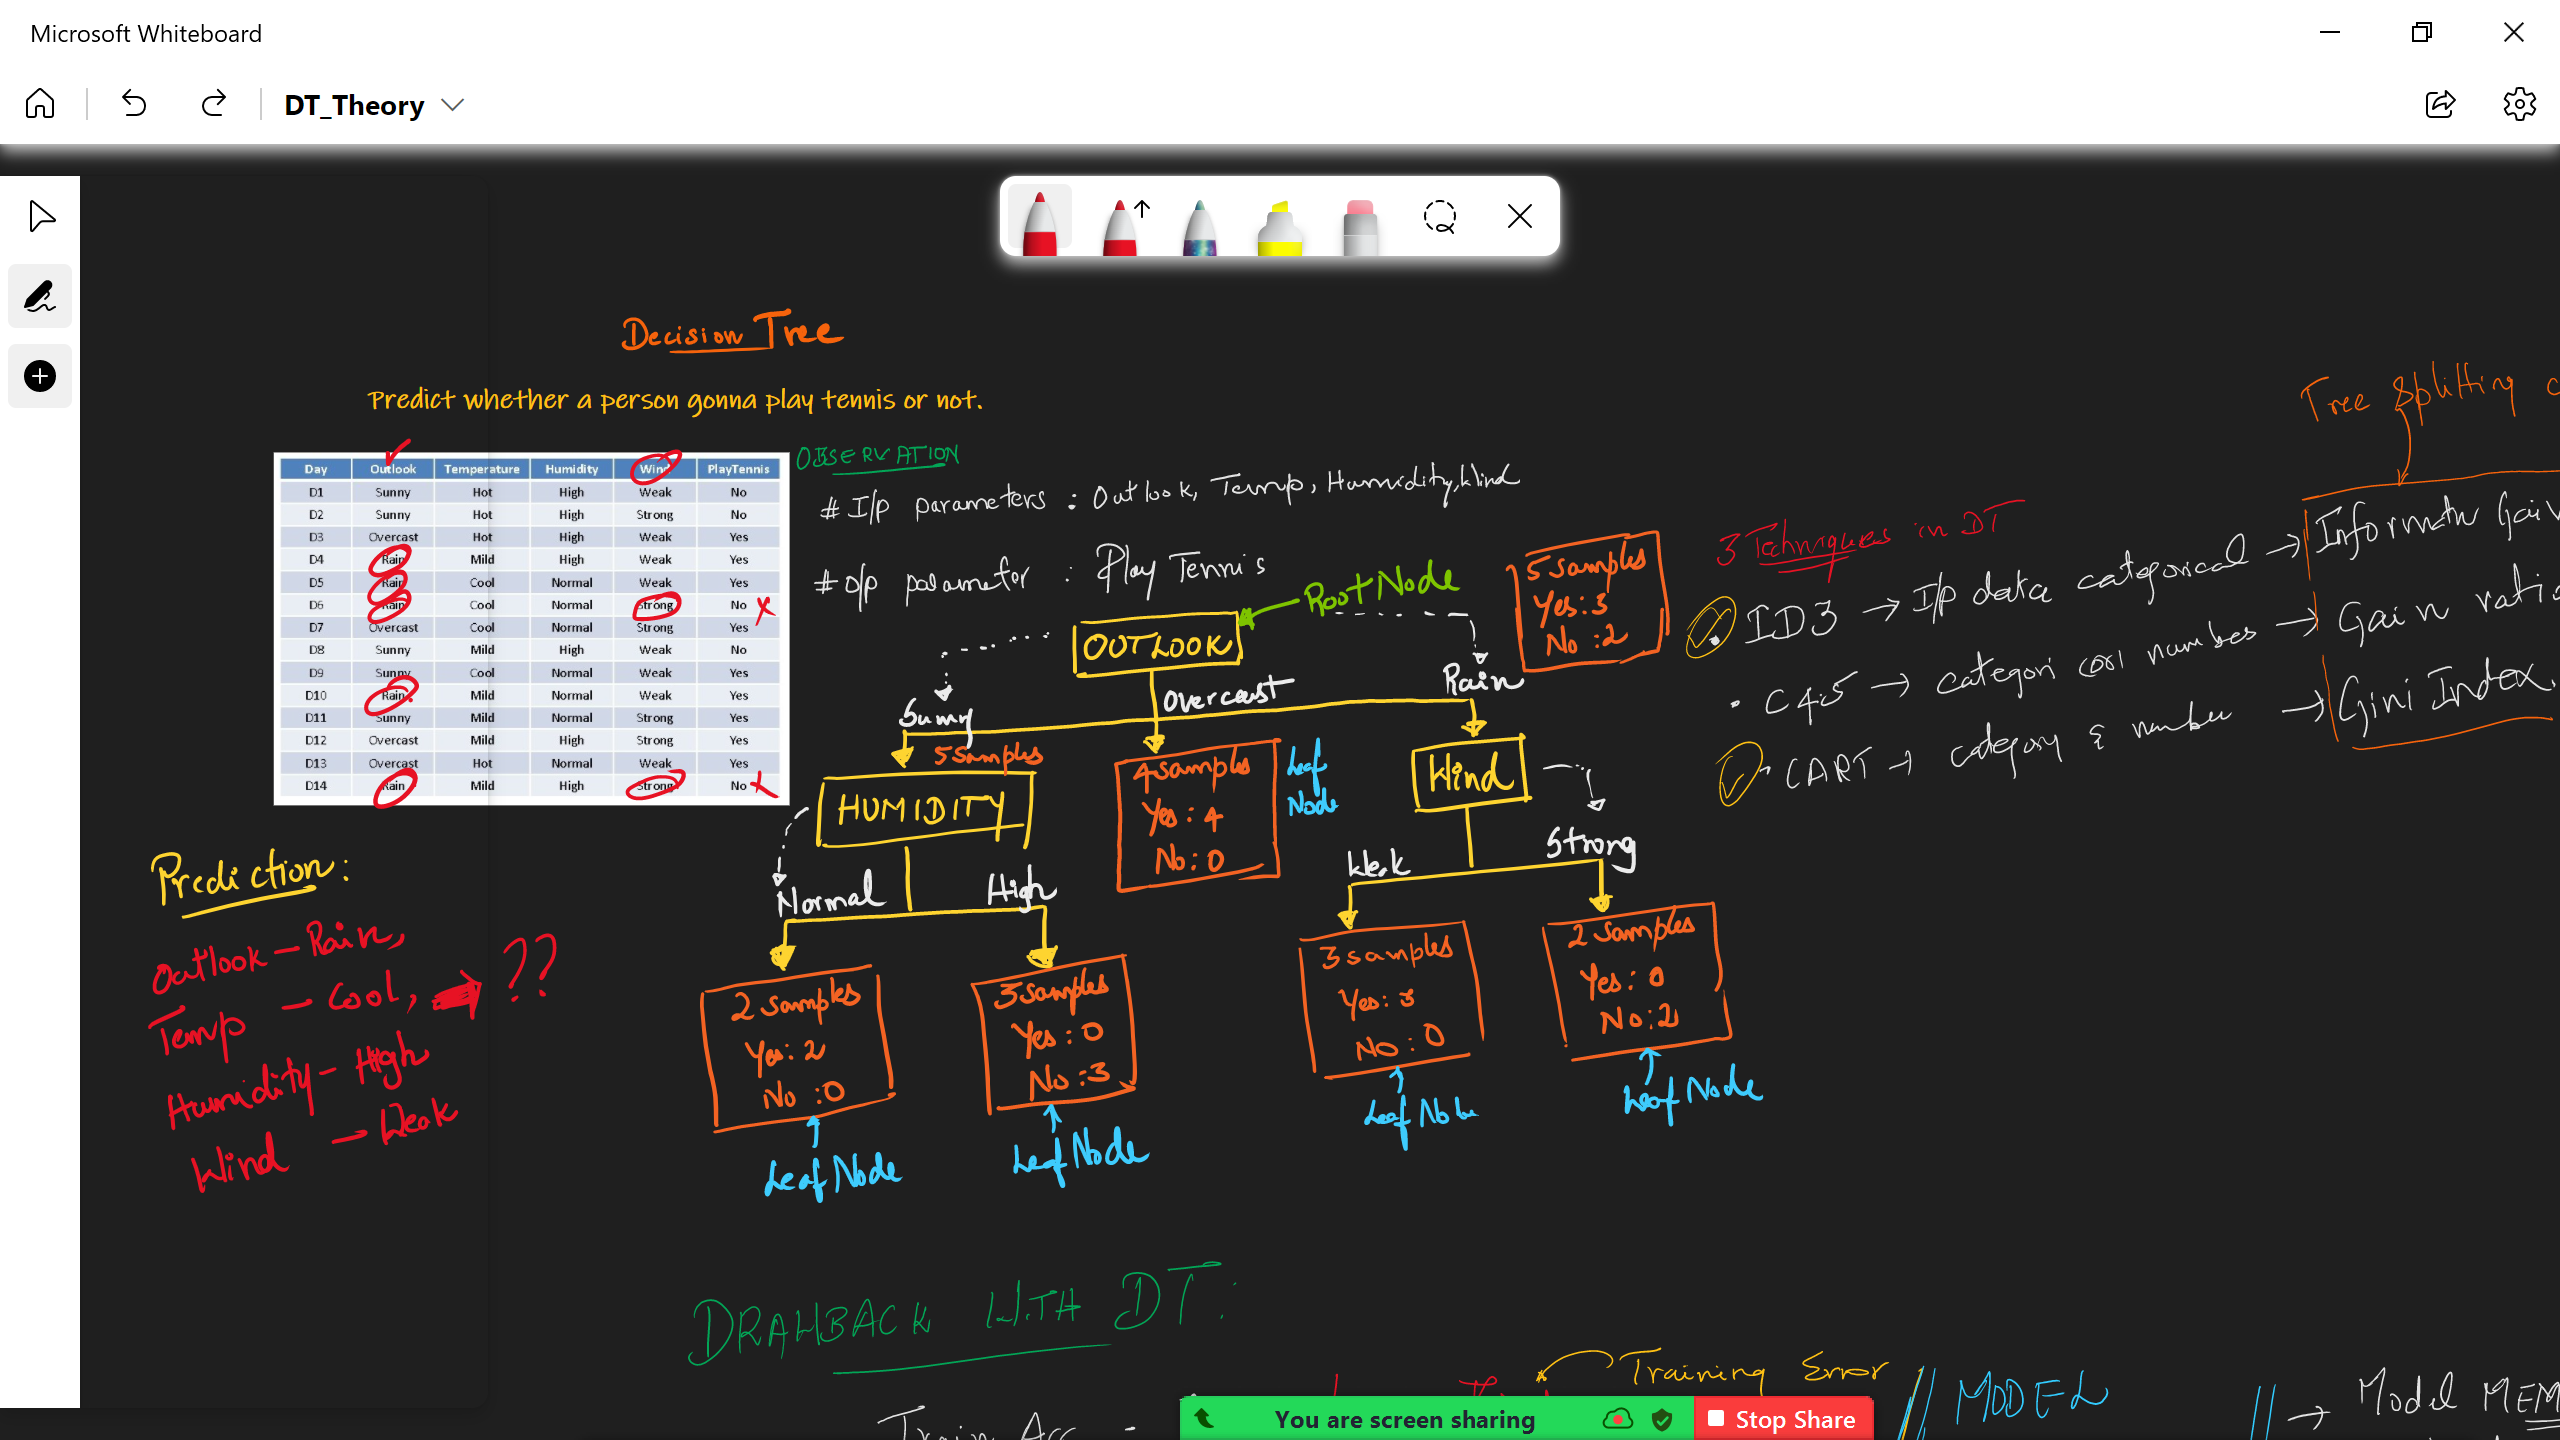 Microsoft Whiteboard
DT_Theory
Decision Tree
Predict whether a person gonna play tennis or not.
Day Outlook Temperature Humidity Wind PlayTennis
D1 Sunny Hot High Weak No
D2 Sunny Hot High Strong No
D3 Overcast Hot High Weak Yes
D4 Rain Mild High Weak Yes
D5 Rain Cool Normal Weak Yes
D6 Rain Cool Normal Strong No
D7 Overcast Cool Normal Strong Yes
D8 Sunny Mild High Weak No
D9 Sunny Cool Normal Weak Yes
D10 Rain Mild Normal Weak Yes
D11 Sunny Mild Normal Strong Yes
D12 Overcast Mild High Strong Yes
D13 Overcast Hot Normal Weak Yes
D14 Rain Mild High Strong No
OBSERVATION
# I/p parameters : Outlook, Temp, Humidity, Wind
# O/p parameter : Play Tennis
Root Node
OUTLOOK
5 samples
Yes: 3
No : 2
Sunny
Overcast
Rain
5 Samples
HUMIDITY
4 samples
Yes : 4
No : 0
Leaf
Node
Wind
Normal
High
Weak
Strong
2 Samples
Yes: 2
No : 0
Leaf Node
3 samples
Yes : 0
No : 3
Leaf Node
3 samples
Yes: 3
No : 0
Leaf Node
2 Samples
Yes: 0
No: 2
Leaf Node
Prediction:
Outlook - Rain,
Temp - Cool, ??
Humidity - High
Wind - Weak
Tree Splitting
3 Techniques in DT
ID3 → I/p data categorical → Informatn Gain
C4.5 → categori number → Gain ratio
CART → category & number → Gini Index.
DRAWBACK WITH DT:
Training Error
MODEL
→ Model MEM
Train Acc -
You are screen sharing
Stop Share